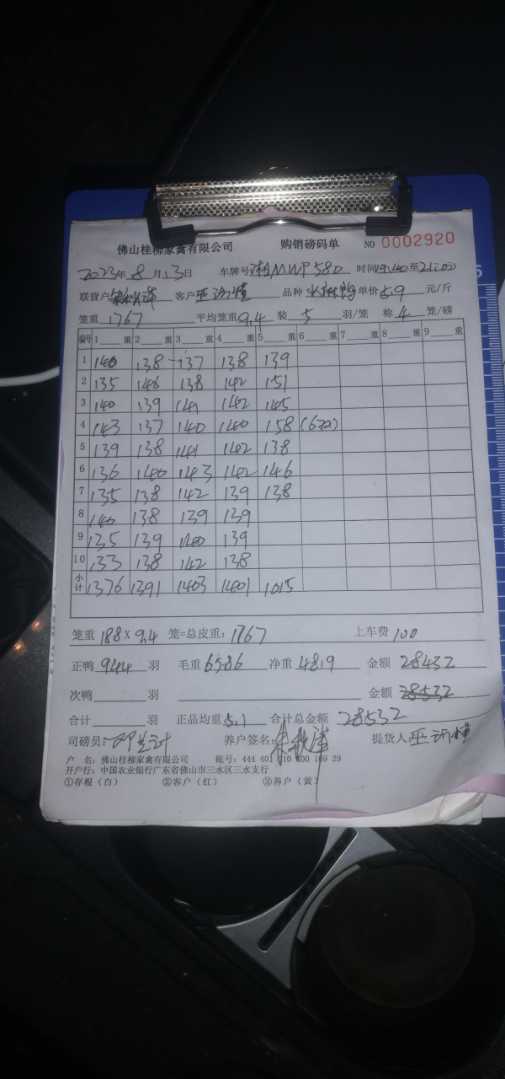 佛山桂柳家禽有限公司 购销磅码单 NO 0002920
2023年 8 月 13日 车牌号 湘MWP580 时间(19:40至21:00)
联营户 客户 品种 单价 5.9 元/斤
笼重 1767 平均笼重 9.4 装 5 羽/笼 称 4 笼/磅
编号 1 重 2 重 3 重 4 重 5 重 6 重 7 重 8 重 9 重
1 140 138 137 138 139
2 135 146 138 142 151
3 140 139 141 142 145
4 143 137 140 140 158 (620)
5 139 138 141 142 138
6 136 140 143 142 146
7 135 138 142 139 138
8 140 138 139 139
9 135 139 140 139
10 133 138 142 138
小计 1376 1391 1403 1401 1015
笼重 188 x 9.4 笼=总皮重: 1767 上车费 100
正鸭 944 羽 毛重 6586 净重 4819 金额 28432
次鸭 羽 金额 28532
合计 羽 正品均重 5.1 合计总金额 28532
司磅员: 养户签名: 提货人
户 名: 佛山桂柳家禽有限公司 账号: 444 601 29
开户行: 中国农业银行广东省佛山市三水区三水支行
①存根(白) ②客户(红) ③养户(黄)